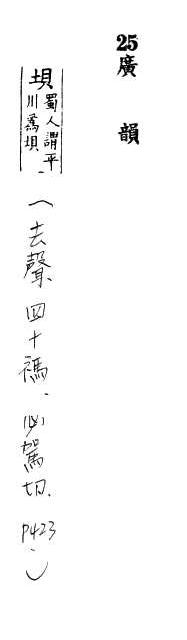 25廣韻
垻蜀人謂平
川爲垻
（去聲．四十禡．必駕切．P423．）